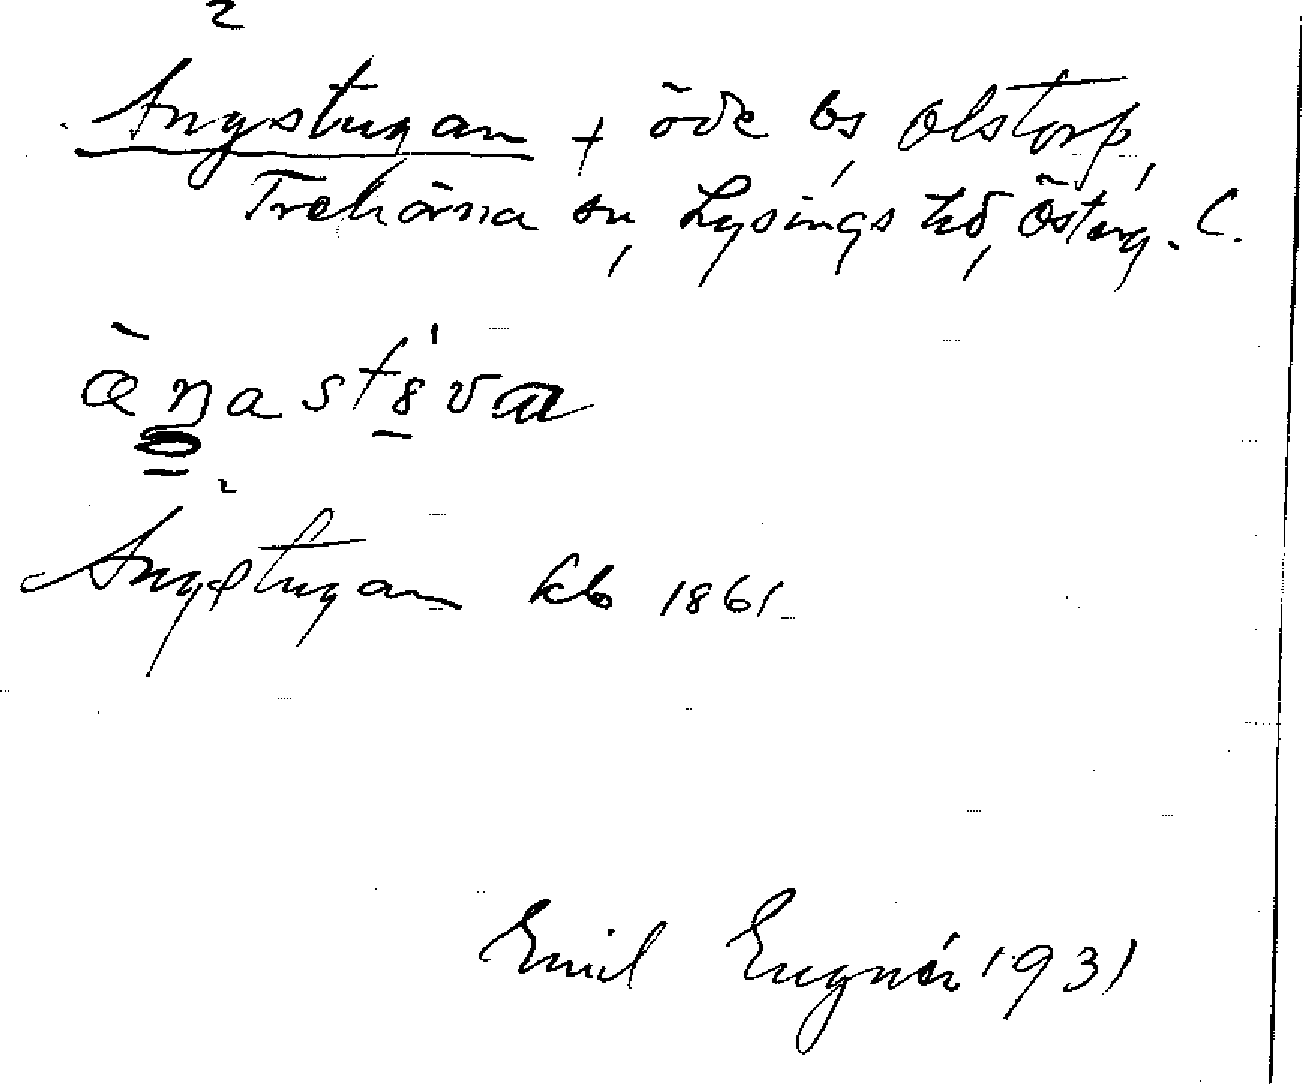 Ängstugan + öde bs, Olstorp,
Trehörna sn, Lysings hd, Österg. L.
æŋastȣva
Ängstugan kb 1861
Emil Eugnér 1931